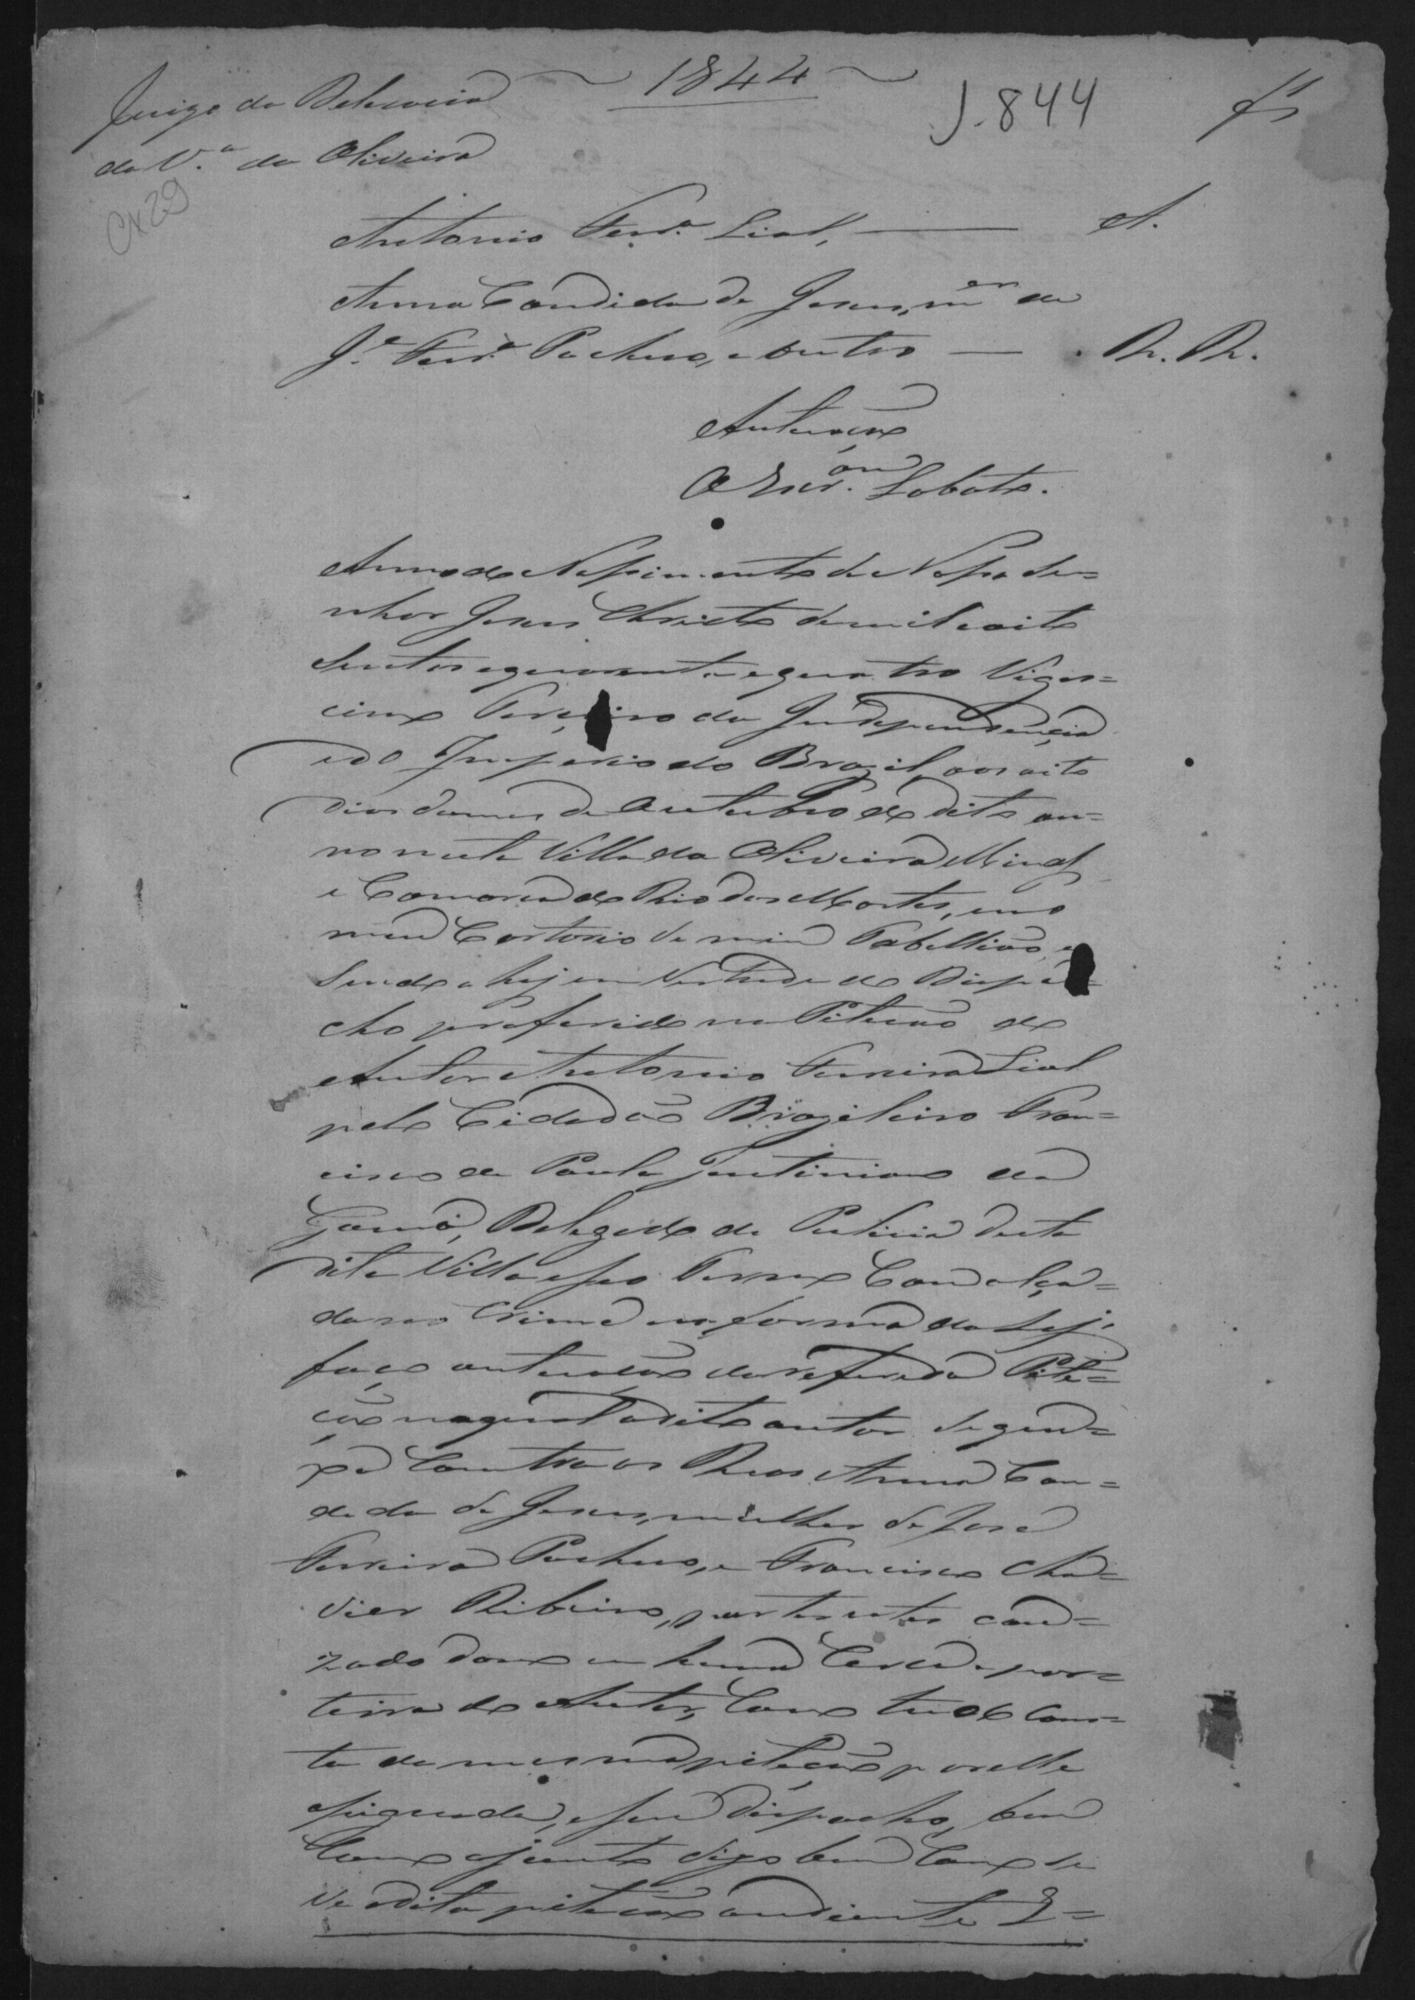 1844
J.844
fs 1
Juizo da Delegacia
da V.ª da Oliveira
CX29
Antonio Ferr.ª Lial, A.
Anna Candida de Jesus, m.er de
J.e Ferr.ª Pacheco, e outro R. R.
Autuação
O Escr.am Lobato.
Anno do Nassimento de Nosso Se=
nhor Jesus Christo de mil e oito
Centos e quarenta e quatro Viges=
cimo Terceiro da Independencia
e do Imperio do Brazil, aos oito
dias do mes de Outubro do dito an=
no nesta Villa da Oliveira Minas
e Comarca do Rio das Mortes, em o
meu Cartorio de mim Tabellião, e
sendo ahy em Vertude do Dispa=
cho proferido na Petição do
Autor Antonio Ferreira Lial
pelo Cidadão Brazileiro Fran=
cisco de Paula Justiniano da
Gama, Delegado de Pulicia desta
dita Villa e seo Termo Com alça=
da no Crime na forma da Ley,
faço autuação da referida Peti=
ção na qual o dito autor se quei=
xa Contra os Reos Anna Can=
dida de Jesus, mulher de José
Ferreira Pacheco, e Francisco Cha=
vier Ribeiro, por terem cau=
zado dano em huma Cerca e por=
teira do Autor, Como tudo Cons=
ta da mesma petição por elle
assignada, e seu Dispacho, bem
Como ajunto digo bem Como se
Ve a dita petição ao diente E=